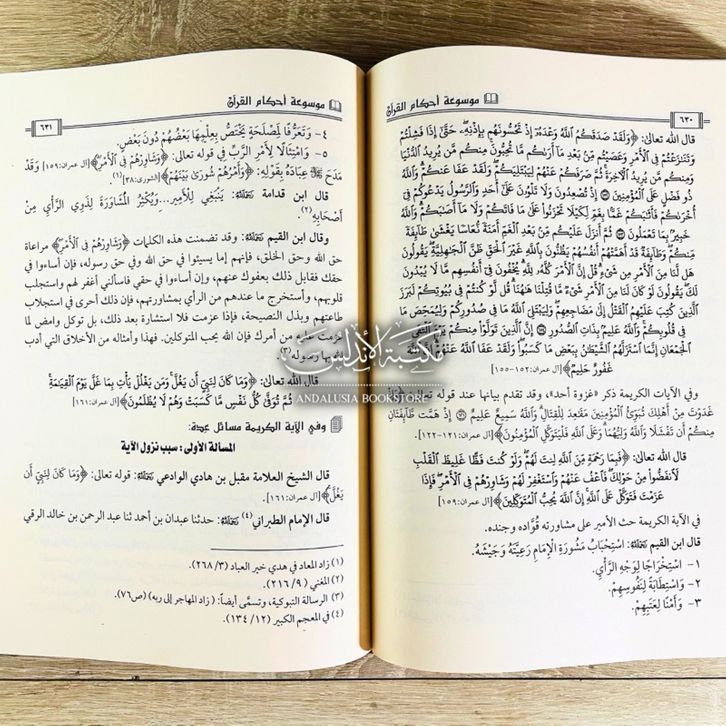 موسوعة أحكام القرآن
٦٣٠
قال الله تعالى: ﴿وَلَقَدْ صَدَقَكُمُ اللَّهُ وَعْدَهُ إِذْ تَحُسُّونَهُم بِإِذْنِهِ حَتَّىٰ إِذَا فَشِلْتُمْ
وَتَنَازَعْتُمْ فِي الْأَمْرِ وَعَصَيْتُم مِّن بَعْدِ مَا أَرَاكُم مَّا تُحِبُّونَ مِنكُم مَّن يُرِيدُ الدُّنْيَا
وَمِنكُم مَّن يُرِيدُ الْآخِرَةَ ثُمَّ صَرَفَكُمْ عَنْهُمْ لِيَبْتَلِيَكُمْ وَلَقَدْ عَفَا عَنكُمْ وَاللَّهُ
ذُو فَضْلٍ عَلَى الْمُؤْمِنِينَ ۝ إِذْ تُصْعِدُونَ وَلَا تَلْوُونَ عَلَىٰ أَحَدٍ وَالرَّسُولُ يَدْعُوكُمْ فِي
أُخْرَاكُمْ فَأَثَابَكُمْ غَمًّا بِغَمٍّ لِّكَيْلَا تَحْزَنُوا عَلَىٰ مَا فَاتَكُمْ وَلَا مَا أَصَابَكُمْ وَاللَّهُ
خَبِيرٌ بِمَا تَعْمَلُونَ ۝ ثُمَّ أَنزَلَ عَلَيْكُم مِّن بَعْدِ الْغَمِّ أَمَنَةً نُّعَاسًا يَغْشَىٰ طَائِفَةً
مِّنكُمْ وَطَائِفَةٌ قَدْ أَهَمَّتْهُمْ أَنفُسُهُمْ يَظُنُّونَ بِاللَّهِ غَيْرَ الْحَقِّ ظَنَّ الْجَاهِلِيَّةِ يَقُولُونَ
هَل لَّنَا مِنَ الْأَمْرِ مِن شَيْءٍ قُلْ إِنَّ الْأَمْرَ كُلَّهُ لِلَّهِ يُخْفُونَ فِي أَنفُسِهِم مَّا لَا يُبْدُونَ
لَكَ يَقُولُونَ لَوْ كَانَ لَنَا مِنَ الْأَمْرِ شَيْءٌ مَّا قُتِلْنَا هَاهُنَا قُل لَّوْ كُنتُمْ فِي بُيُوتِكُمْ لَبَرَزَ
الَّذِينَ كُتِبَ عَلَيْهِمُ الْقَتْلُ إِلَىٰ مَضَاجِعِهِمْ وَلِيَبْتَلِيَ اللَّهُ مَا فِي صُدُورِكُمْ وَلِيُمَحِّصَ مَا
فِي قُلُوبِكُمْ وَاللَّهُ عَلِيمٌ بِذَاتِ الصُّدُورِ ۝ إِنَّ الَّذِينَ تَوَلَّوْا مِنكُمْ يَوْمَ الْتَقَى
الْجَمْعَانِ إِنَّمَا اسْتَزَلَّهُمُ الشَّيْطَانُ بِبَعْضِ مَا كَسَبُوا وَلَقَدْ عَفَا اللَّهُ عَنْهُمْ إِنَّ اللَّهَ
غَفُورٌ حَلِيمٌ﴾ [آل عمران: ١٥٢-١٥٥]
وفي الآيات الكريمة ذكر «غزوة أحد»، وقد تقدم بيانها عند قوله تعالى: ﴿وَإِذْ
غَدَوْتَ مِنْ أَهْلِكَ تُبَوِّئُ الْمُؤْمِنِينَ مَقَاعِدَ لِلْقِتَالِ وَاللَّهُ سَمِيعٌ عَلِيمٌ ۝ إِذْ هَمَّت طَّائِفَتَانِ
مِنكُمْ أَن تَفْشَلَا وَاللَّهُ وَلِيُّهُمَا وَعَلَى اللَّهِ فَلْيَتَوَكَّلِ الْمُؤْمِنُونَ﴾ [آل عمران: ١٢١-١٢٢].
قال الله تعالى: ﴿فَبِمَا رَحْمَةٍ مِّنَ اللَّهِ لِنتَ لَهُمْ وَلَوْ كُنتَ فَظًّا غَلِيظَ الْقَلْبِ
لَانفَضُّوا مِنْ حَوْلِكَ فَاعْفُ عَنْهُمْ وَاسْتَغْفِرْ لَهُمْ وَشَاوِرْهُمْ فِي الْأَمْرِ فَإِذَا
عَزَمْتَ فَتَوَكَّلْ عَلَى اللَّهِ إِنَّ اللَّهَ يُحِبُّ الْمُتَوَكِّلِينَ﴾ [آل عمران: ١٥٩]
في الآية الكريمة حث الأمير على مشاورته قُوَّاده وجنده.
قال ابن القيم رَحِمَهُ اللَّهُ: اسْتِحْبَابُ مَشُورَةِ الْإِمَامِ رَعِيَّتَهُ وَجَيْشَهُ.
١- اسْتِخْرَاجًا لِوَجْهِ الرَّأْيِ.
٢- وَاسْتِطَابَةً لِنُفُوسِهِمْ.
٣- وَأَمْنًا لِعَتْبِهِمْ.
موسوعة أحكام القرآن
٦٣١
٤- وَتَعَرُّفًا لِمَصْلَحَةٍ يَخْتَصُّ بِعِلْمِهَا بَعْضُهُمْ دُونَ بَعْضٍ.
٥- وَامْتِثَالًا لِأَمْرِ الرَّبِّ فِي قوله تعالى: ﴿وَشَاوِرْهُمْ فِي الْأَمْرِ﴾ [آل عمران: ١٥٩] وَقَدْ
مَدَحَ ﷻ عِبَادَهُ بِقَوْلِهِ: ﴿وَأَمْرُهُمْ شُورَىٰ بَيْنَهُمْ﴾ [الشورى: ٣٨](١).
قال ابن قدامة رَحِمَهُ اللَّهُ: يَنْبَغِي لِلْأَمِيرِ...وَيُكْثِرُ الْمُشَاوَرَةَ لِذَوِي الرَّأْيِ مِنْ
أَصْحَابِهِ(٢).
وقال ابن القيم رَحِمَهُ اللَّهُ: وقد تضمنت هذه الكلمات ﴿وَشَاوِرْهُمْ فِي الْأَمْرِ﴾ مراعاة
حق الله وحق الخلق، فإنهم إما يسيئوا في حق الله وفي حق رسوله، فإن أساءوا في
حقك فقابل ذلك بعفوك عنهم، وإن أساءوا في حقي فاسألني أغفر لهم واستجلب
قلوبهم، وأستخرج ما عندهم من الرأي بمشاورتهم، فإن ذلك أحرى في استجلاب
طاعتهم وبذل النصيحة، فإذا عزمت فلا استشارة بعد ذلك، بل توكل وامض لما
عزمت عليه من أمرك فإن الله يحب المتوكلين. فهذا وأمثاله من الأخلاق التي أدب
بها رسوله(٣).
قال الله تعالى: ﴿وَمَا كَانَ لِنَبِيٍّ أَن يَغُلَّ وَمَن يَغْلُلْ يَأْتِ بِمَا غَلَّ يَوْمَ الْقِيَامَةِ
ثُمَّ تُوَفَّىٰ كُلُّ نَفْسٍ مَّا كَسَبَتْ وَهُمْ لَا يُظْلَمُونَ﴾ [آل عمران: ١٦١]
وفي الآية الكريمة مسائل عدة:
المسالة الأولى: سبب نزول الآية
قال الشيخ العلامة مقبل بن هادي الوادعي رَحِمَهُ اللَّهُ: قوله تعالى: ﴿وَمَا كَانَ لِنَبِيٍّ أَن
يَغُلَّ﴾ [آل عمران: ١٦١].
قال الإمام الطبراني(٤) رَحِمَهُ اللَّهُ: حدثنا عبدان بن أحمد ثنا عبد الرحمن بن خالد الرقي
(١) زاد المعاد في هدي خير العباد (٣/ ٢٦٨).
(٢) المغني (٩/ ٢١٦).
(٣) الرسالة التبوكية، وتسمَّى أيضاً: (زاد المهاجر إلى ربه) (ص٧٦).
(٤) في المعجم الكبير (١٢/ ١٣٤)
مكتبة الأندلس
ANDALUSIA BOOKSTORE